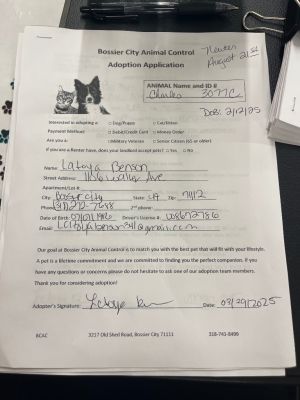 Bossier City Animal Control
Adoption Application
Neuter
August 21st
ANIMAL Name and ID #
Charles 3077C
DOB: 2/12/25
Interested in adopting a: □ Dog/Puppy □ Cat/Kitten
Payment Method: □ Debit/Credit Card □ Money Order
Are you a: □ Military Veteran □ Senior Citizen (65 or older)
If you are a Renter have, does your landlord accept pets? □ Yes □ No
Name: Latoya Benson
Street Address: Ave
Apartment/Lot #:
City: Bossier City State: LA Zip:
Phone: 2nd phone:
Date of Birth: Driver's License #:
Email:
Our goal at Bossier City Animal Control is to match you with the best pet that will fit with your lifestyle.
A pet is a lifetime commitment and we are committed to finding you the perfect companion. If you
have any questions or concerns please do not hesitate to ask one of our adoption team members.
Thank you for considering adoption!
Adopter's Signature: Date: 03/29/2025
BCAC 3217 Old Shed Road, Bossier City 71111 318-741-8499